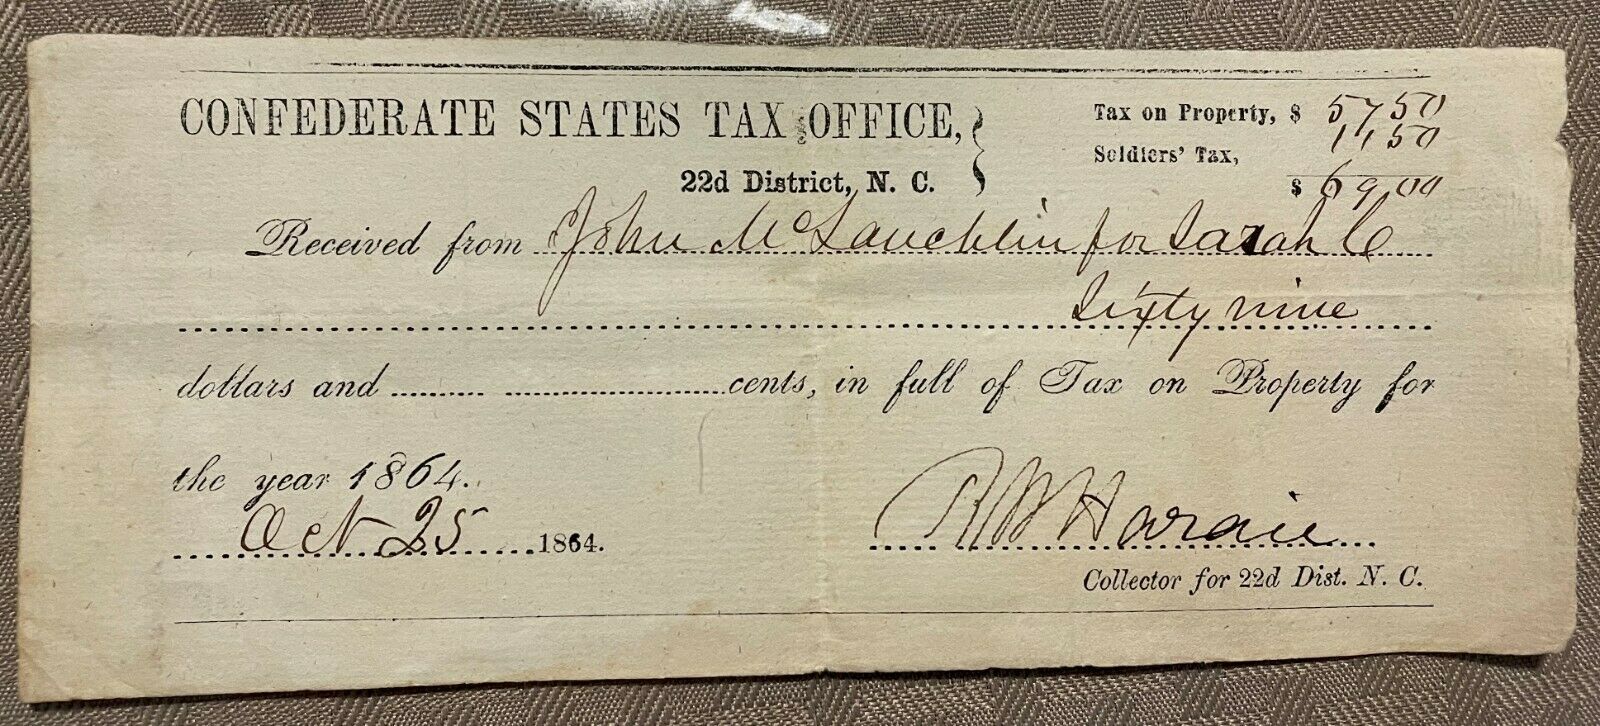 CONFEDERATE STATES TAX OFFICE,
22d District, N. C.
Tax on Property, $ 57 50
Soldiers' Tax, 11 50
$ 69,00
Received from John McLauchlin for Sarah C
Sixty nine
dollars and .......... ......................cents, in full of Tax on Property for
the year 1864.
Oct 25 1864.
Collector for 22d Dist. N. C.